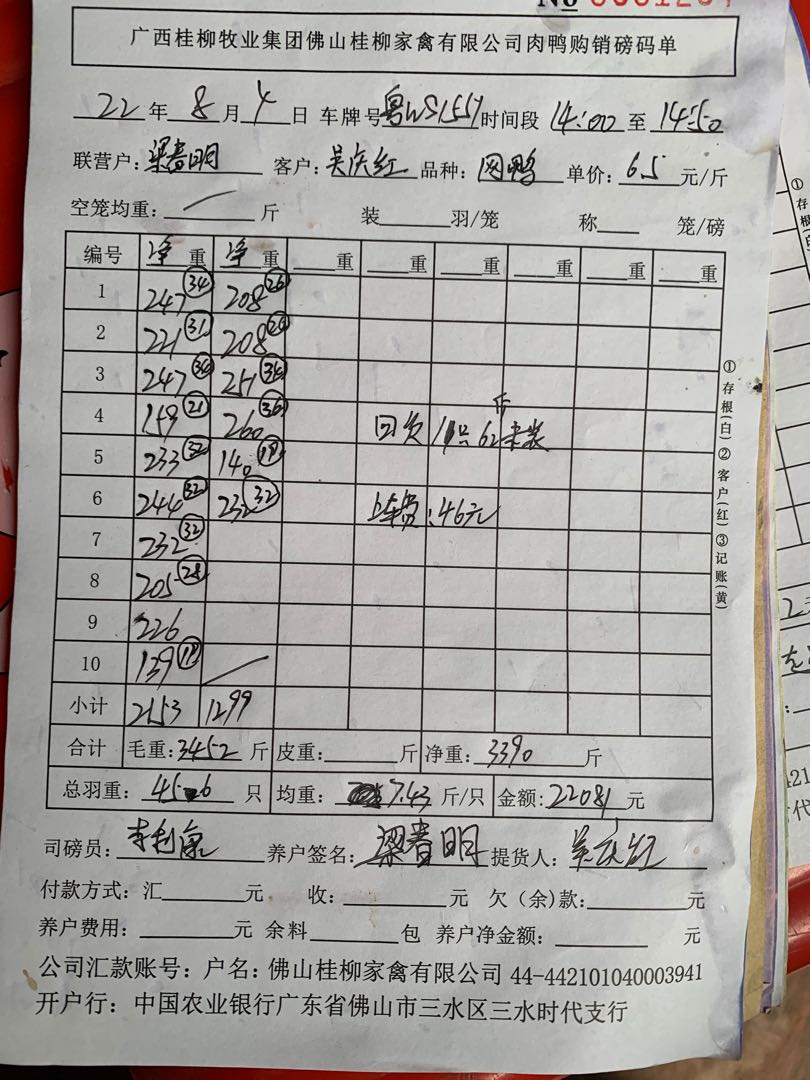 No 0001204
广西桂柳牧业集团佛山桂柳家禽有限公司肉鸭购销磅码单
22年8月4日 车牌号粤WS1557时间段 14:00至14:50
联营户:梁春明 客户:吴庆红 品种:肉鸭 单价:6.5元/斤
空笼均重: / 斤 装 羽/笼 称 笼/磅
编号 净重 净重 重 重 重 重 重 重
1 247 34 208 26
2 221 31 208 26
3 247 251
4 159 21 260 36 回负 11只 62斤未装
5 233 32 140 19
6 244 32 232 32 上车费:46元
7 232 32
8 205 28
9 226
10 139 19 /
小计 2153 1299
合计 毛重:3452斤 皮重: 斤 净重:3390斤
总羽重:456只 均重:7.43斤/只 金额:22081元
司磅员:李利康 养户签名:梁春明 提货人:吴庆红
付款方式:汇 元 收: 元 欠(余)款:
养户费用: 元 余料 包 养户净金额: 元
公司汇款账号:户名:佛山桂柳家禽有限公司 44-442101040003941
开户行:中国农业银行广东省佛山市三水区三水时代支行
①存根(白)②客户(红)③记账(黄)